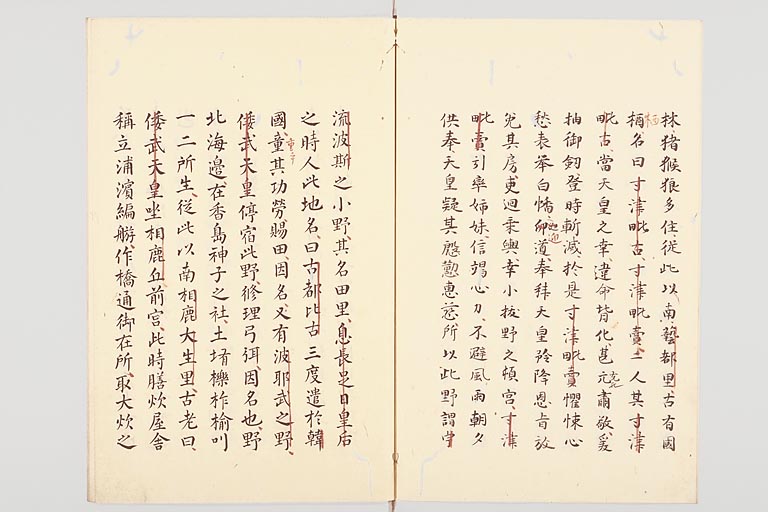 林猪猴狼多住、従此以南藝都里古有國
栖名曰寸津毗古寸津毗賣二人其寸津
毗古當天皇之幸違命背化甚无肅敬爰
抽御釼登時斬滅於是寸津毗賣懼悚心
愁表挙白幡迎道奉拝天皇矜降恩旨放
免其房更廻乗輿幸小抜野之頓宮寸津
毗賣引率姉妹信竭心力不避風雨朝夕
供奉天皇疑其慇懃惠慈所以此野謂宇
流波斯之小野其名田里息長足日皇后
之時人此地名曰古都比古三度遣於韓
國童其功勞賜田因名又有波耶武之野
倭武天皇停宿此野修理弓弭因名也野
北海邊在香島神子之社土堉櫟柞榆叫
一二所生従此以南相鹿大生里古老曰
倭武天皇坐相鹿丘前宮此時膳炊屋舎
稱立浦濱編艀作橋通御在所取大炊之